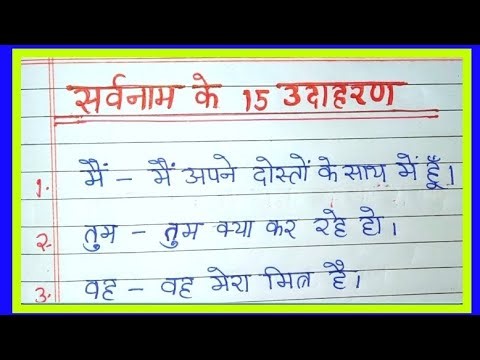 सर्वनाम के 15 उदाहरण
1. मैं – मैं अपने दोस्तों के साथ में हूँ।
2. तुम – तुम क्या कर रहे हो।
3. वह – वह मेरा मित्र है।